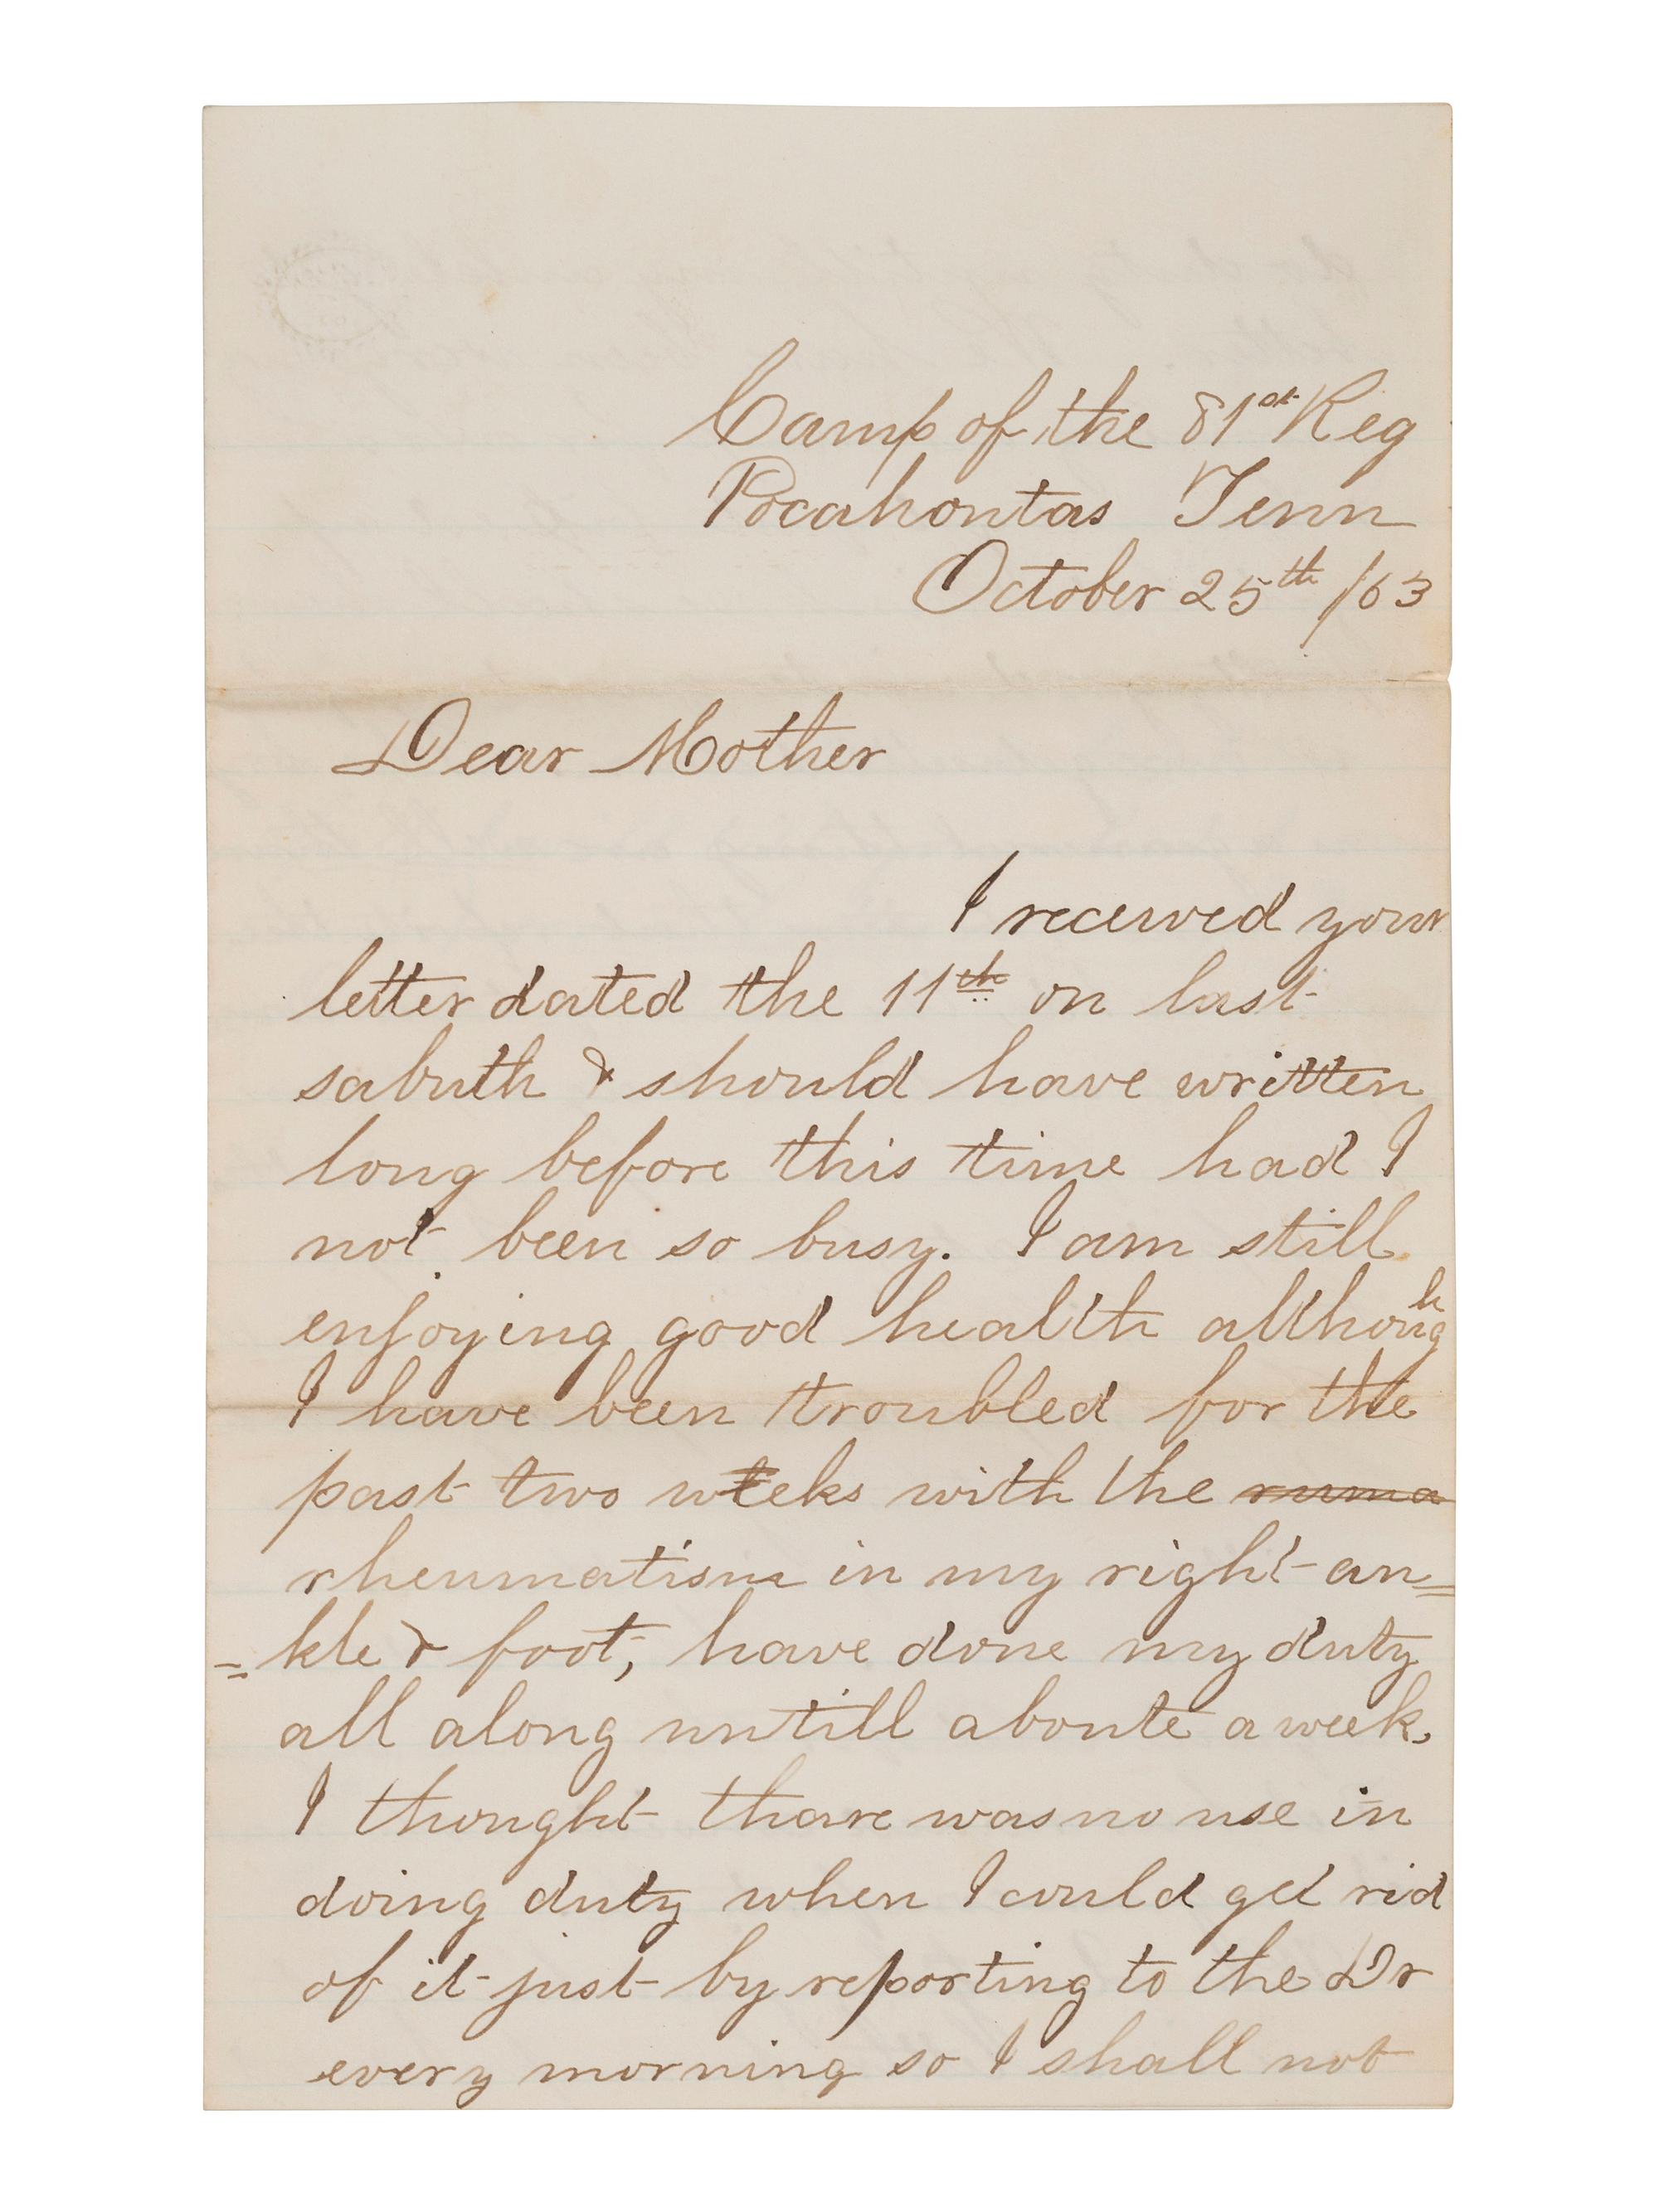 Camp of the 81st Reg
Pocahontas Tenn
October 25th /63
Dear Mother
I received your
letter dated the 11th on last
sabuth & should have written
long before this time had I
not been so busy. I am still
enjoying good health although
I have been troubled for the
past two weeks with the ruma
rheumatism in my right an=
=kle & foot, have done my duty
all along untill aboute a week,
I thought thare was no use in
doing duty when I could get rid
of it just by reporting to the Dr
every morning so I shall not